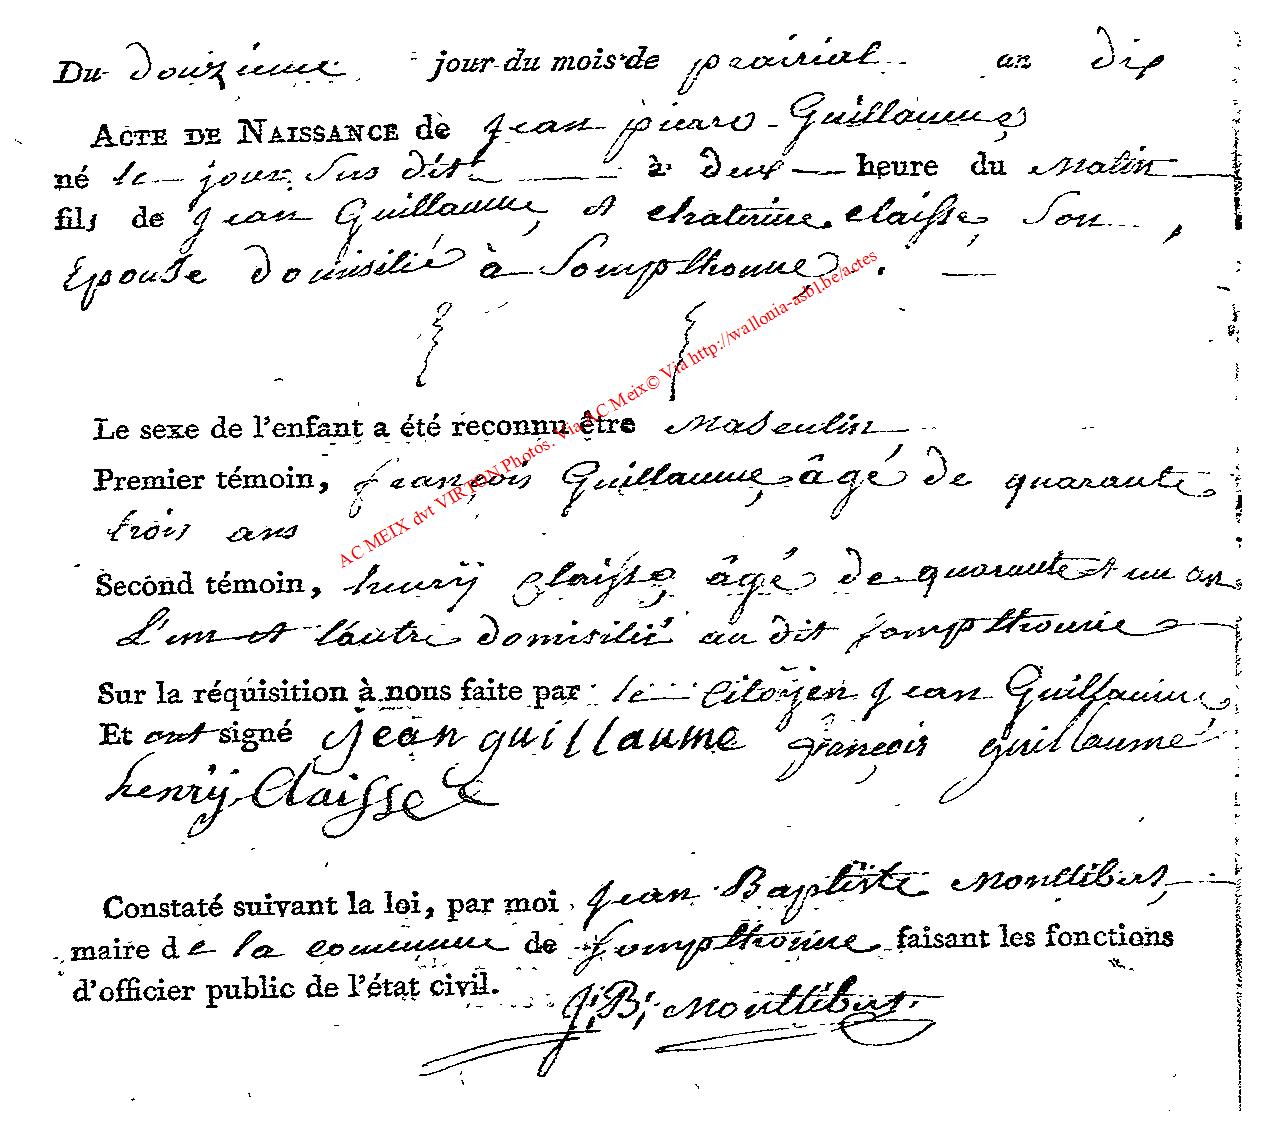 Du douzieme jour du mois de prairial an dix
ACTE DE NAISSANCE de jean piere Guillaume
né le jour sus dit à deux heure du matin
fils de jean Guillaume et chaterine claisse son
Epouse domisilié à Sompthonne.
Le sexe de l'enfant a été reconnu être masculin
Premier témoin, françois Guillaume, âgé de quarante
trois ans
Second témoin, henrÿ Claisse, âgé de quarante et un an
L'un et l'autre domisilié au dit sompthonne
Sur la réquisition à nous faite par le Citoÿen jean Guillaume
Et ont signé jean guillaume françois guillaume
henrÿ Claisse
Constaté suivant la loi, par moi jean Baptiste Montlibert,
maire de la commune de Sompthonne faisant les fonctions
d'officier public de l'état civil.
J; B; Montlibert
AC MEIX dvt VIRTON Photos. Via AC Meix© Via http://wallonia-asbl.be/actes